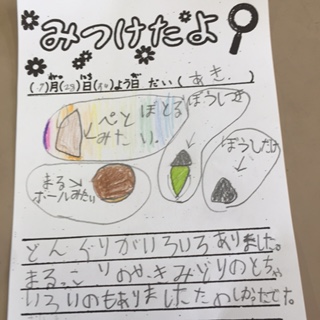 みつけたよ
(7)月(23)日(ホ)ようび だい(あき.)
ぺとぼとる
みたい.
ぼうしつき
ぼうしだけ
まるで
ボールみたい
どんぐりがいろいろありました。
まるっこり のやきみどりのとちゃ
いろいのもありましたたのしかったです。